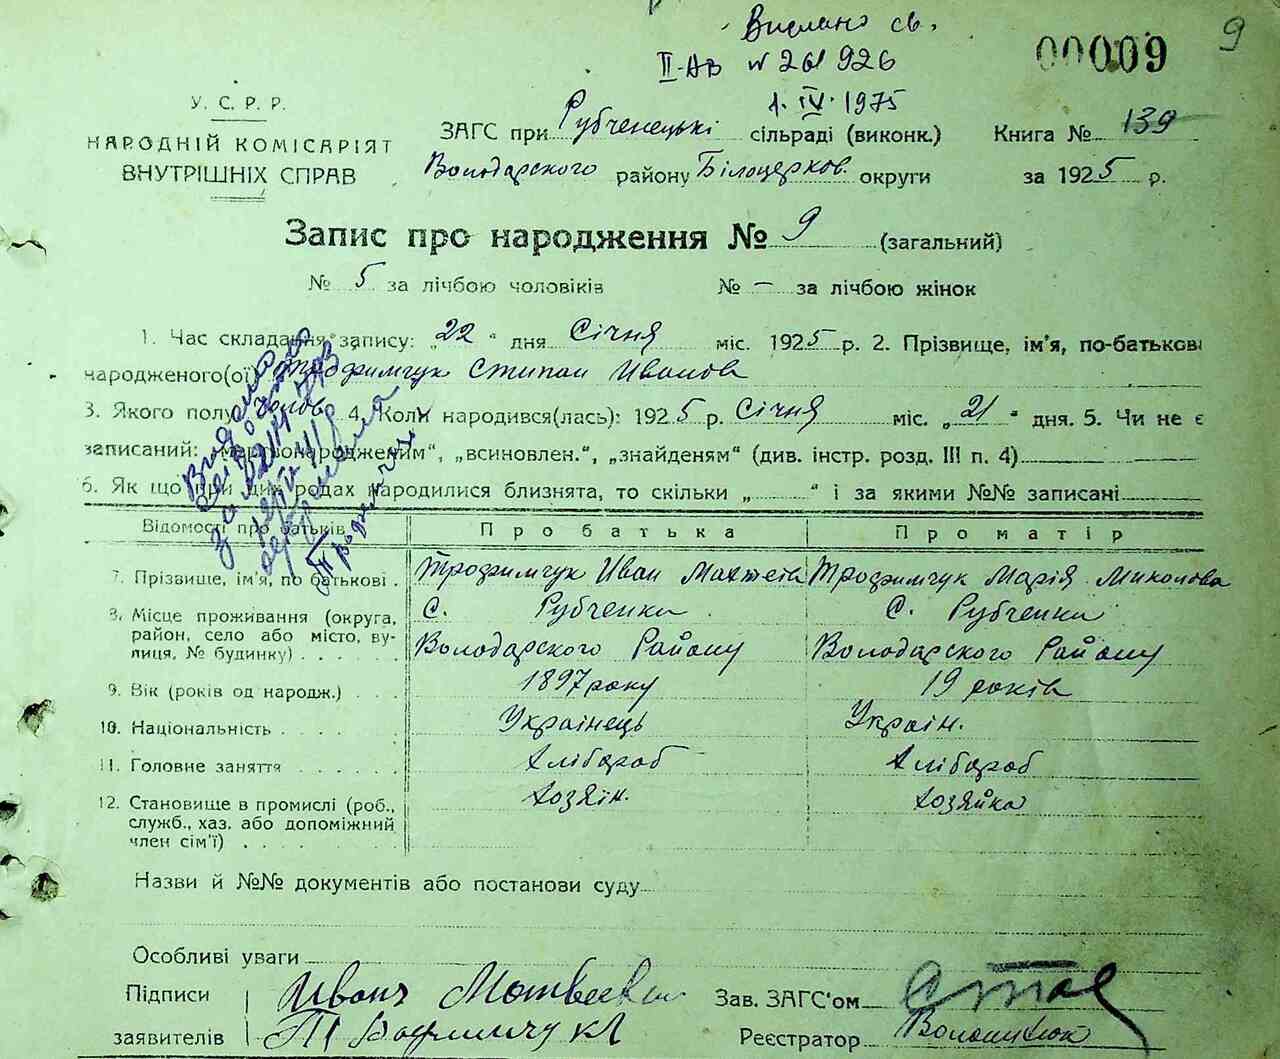 Вислано св.
II-АВ № 261926
1. IV. 1975
00009
9
У. С. Р. Р.
НАРОДНІЙ КОМІСАРІЯТ
ВНУТРІШНІХ СПРАВ
ЗАГС при Рубченецькі сільраді (виконк.) Книга № 139
Володарского району Білоцерков. округи за 1925 р.
Запис про народження № 9 (загальний)
№ 5 за лічбою чоловіків № — за лічбою жінок
1. Час складання запису: „22“ дня Січня міс. 1925 р. 2. Прізвище, ім'я, по-батькові
народженого(ої) Трофимчук Стипан Иванов
3. Якого полу чолов. 4. Коли народився(лась): 1925 р. Січня міс. „21“ дня. 5. Чи не є
записаний: „мертвонародженим“, „всиновлен.“, „знайденям“ (див. інстр. розд. III п. 4)
6. Як що при цих родах народилися близнята, то скільки „ “ і за якими №№ записані
Відомості про батьків Про батька Про матір
7. Прізвище, ім'я, по батькові . Трофимчук Иван Махтеів Трофимчук Марія Миколова
8. Місце проживання (округа, С. Рубченки С. Рубченки
район, село або місто, ву-
лиця, № будинку) . . . . Володарского Району Володарского Району
9. Вік (років од народж.) . . . 1897 року 19 років
10. Національність . . . . . Українець Україн.
11. Головне заняття . . . . . Хлібороб Хлібороб
12. Становище в промислі (роб., Хозяін. Хозяйка
служб., хаз. або допоміжний
член сім'ї) . . . . .
Назви й №№ документів або постанови суду
Особливі уваги
Підписи Иванъ Зав. ЗАГС'ом
заявителів Реєстратор